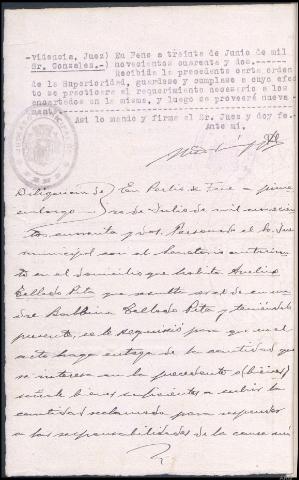 -videncia, Juez) En Fene a treinta de Junio de mil
Sr. Gonzalez.-) novecientos cuarenta y dos.
Recibida la precedente carta orden
de la Superioridad, guardese y cumplase a cuyo efec
to se practicara el requerimiento necesario a los
encartados en la misma, y luego se proveerá nueva
mente.
Asi lo mando y firma el Sr. Juez y doy fe.
Ante mi,
Diligencia de) En Perlio de Fene a prime
embargo ro de Julio de mil novecien
tos cuarenta y dos. Personado el Sr. Juez
municipal con el Secretario
en el domicilio que habita Aurelio
Tellado Pita que resulta ser el de su ma
dre Balbina Tellado Pita y teniéndolo
presente, se le requirió para que en el
acto haga entrega de la cantidad que
se interesa en la precedente o (bienes)
señale bienes suficientes a cubrir la
cantidad reclamada para responder
a las responsabilidades de la causa nú